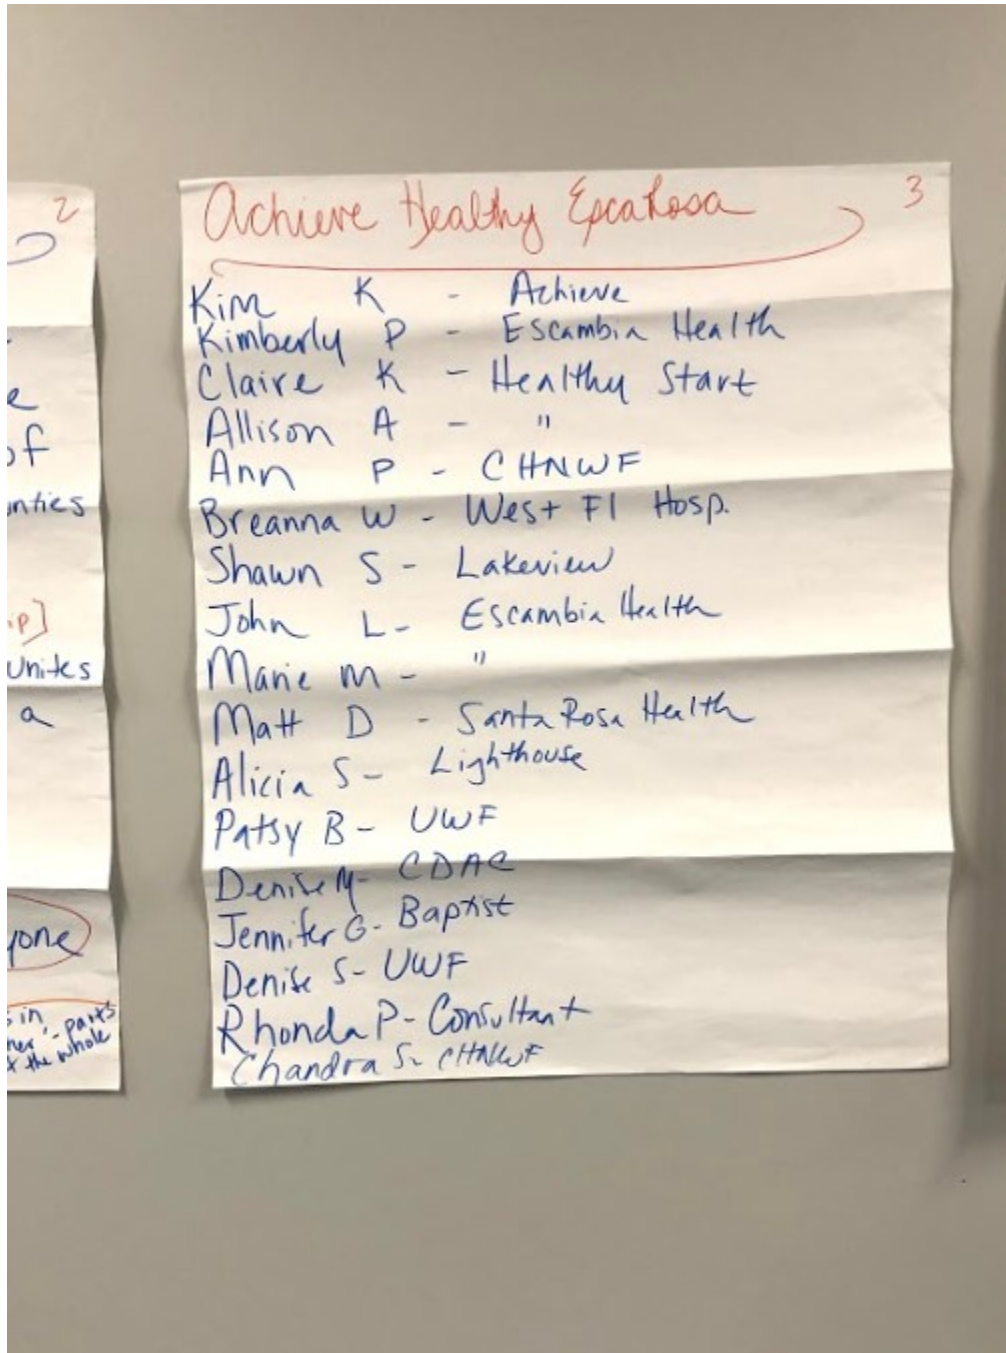 2
e
of
unties
ip]
unites
a
yone
in
parts
the whole
Achieve Healthy EscaRosa 3
Kim K - Achieve
Kimberly P - Escambia Health
Claire K - Healthy Start
Allison A - "
Ann P - CHNWF
Breanna W - West Fl Hosp.
Shawn S - Lakeview
John L - Escambia Health
Marie M - "
Matt D - Santa Rosa Health
Alicia S - Lighthouse
Patsy B - UWF
Denise M - CDAC
Jennifer G - Baptist
Denise S - UWF
Rhonda P - Consultant
Chandra S - CHNWF